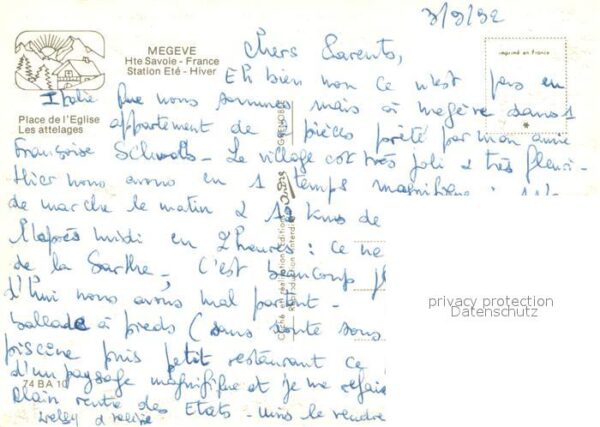 3/9/92
MEGEVE
Hte Savoie - France
Station Eté - Hiver
Place de l'Eglise
Les attelages
imprimé en France
Chers Parents,
Eh bien non ce n'est pas en
Italie que nous sommes mais à megève dans 1
appartement de 2 pièces prêté par mon amie
Françoise - Le village est très joli & très fleuri -
Hier nous avons eu 1 temps magnifique :
de marche le matin & 10 kms de
l'après midi en 2 heures : ce ne
de la Sarthe - C'est beaucoup
d'hui nous avons mal partout -
ballade à pieds (sans doute sous
piscine puis petit restaurant ce
d'un paysage magnifique et je me refais
plain rentre des Etats - Unis le vendre
74 BA 10
privacy protection
Datenschutz